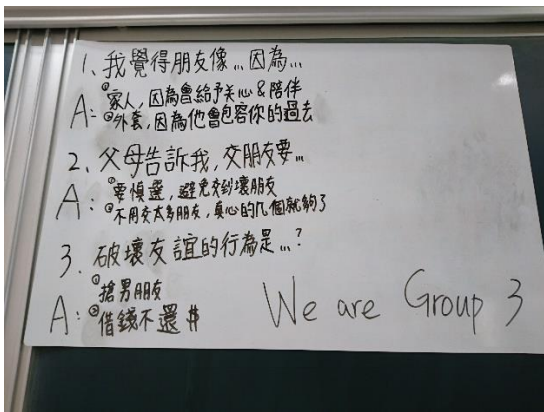 1、我覺得朋友像...因為...
A:①家人,因為會給予关心&陪伴
②外套,因為他會包容你的過去
2、父母告訴我,交朋友要...
A:①要慎選,避免交到壞朋友
②不用交太多朋友,真心的几個就夠了
3、破壞友誼的行為是...?
A:①搶男朋友
②借錢不還$
We are Group 3